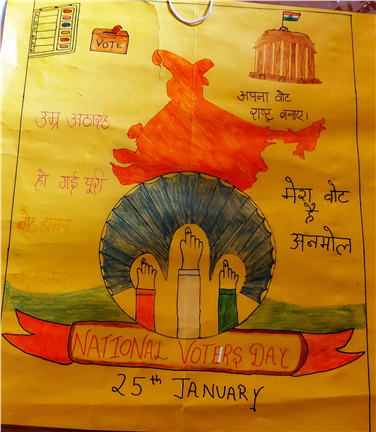 VOTE
अपना वोट
राष्ट्र बनाए।
उम्र अठारह
हो गई पूरी
मेरा वोट
है
अनमोल
वोट डालना
NATIONAL VOTERS DAY
25th JANUARY